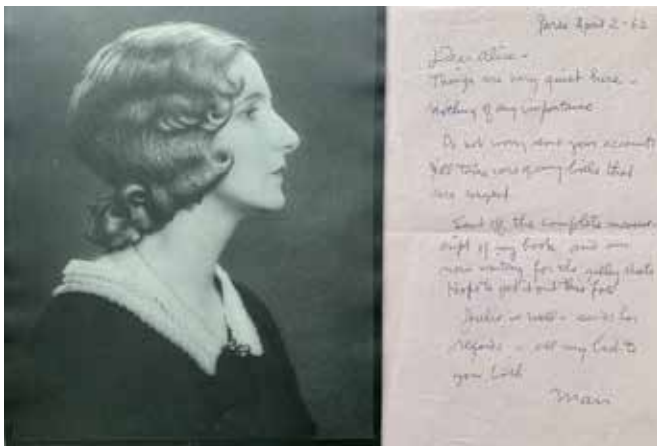 Paris April 2-62
Dear Alice -
Things are very quiet here -
nothing of any importance
Do not worry your account
take care of any bills that
are urgent
Sent off the complete manus-
cript of my book and am
now waiting for the galley sheets
Hope to get it out this fall
is well - sends her
regards - all my best to
you both